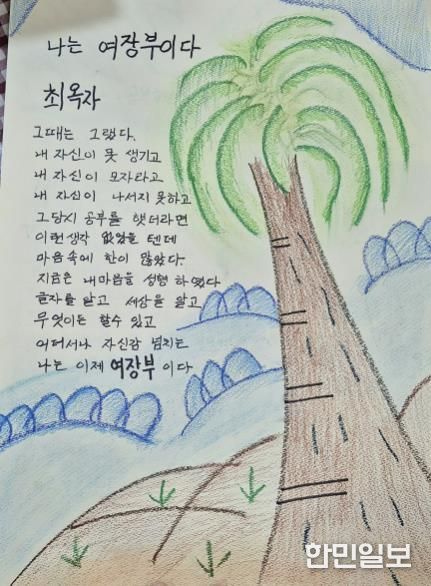 나는 여장부이다
최옥자
그때는 그랬다.
내 자신이 못 생기고
내 자신이 모자라고
내 자신이 나서지 못하고
그당시 공부를 햇더라면
이런생각 없었을 텐데
마음속에 한이 많았다.
지금은 내마음을 성형 하였다
글자를 알고 세상을 알고
무엇이든 할수 있고
어디서나 자신감 넘치는
나는 이제 여장부 이다
한민일보